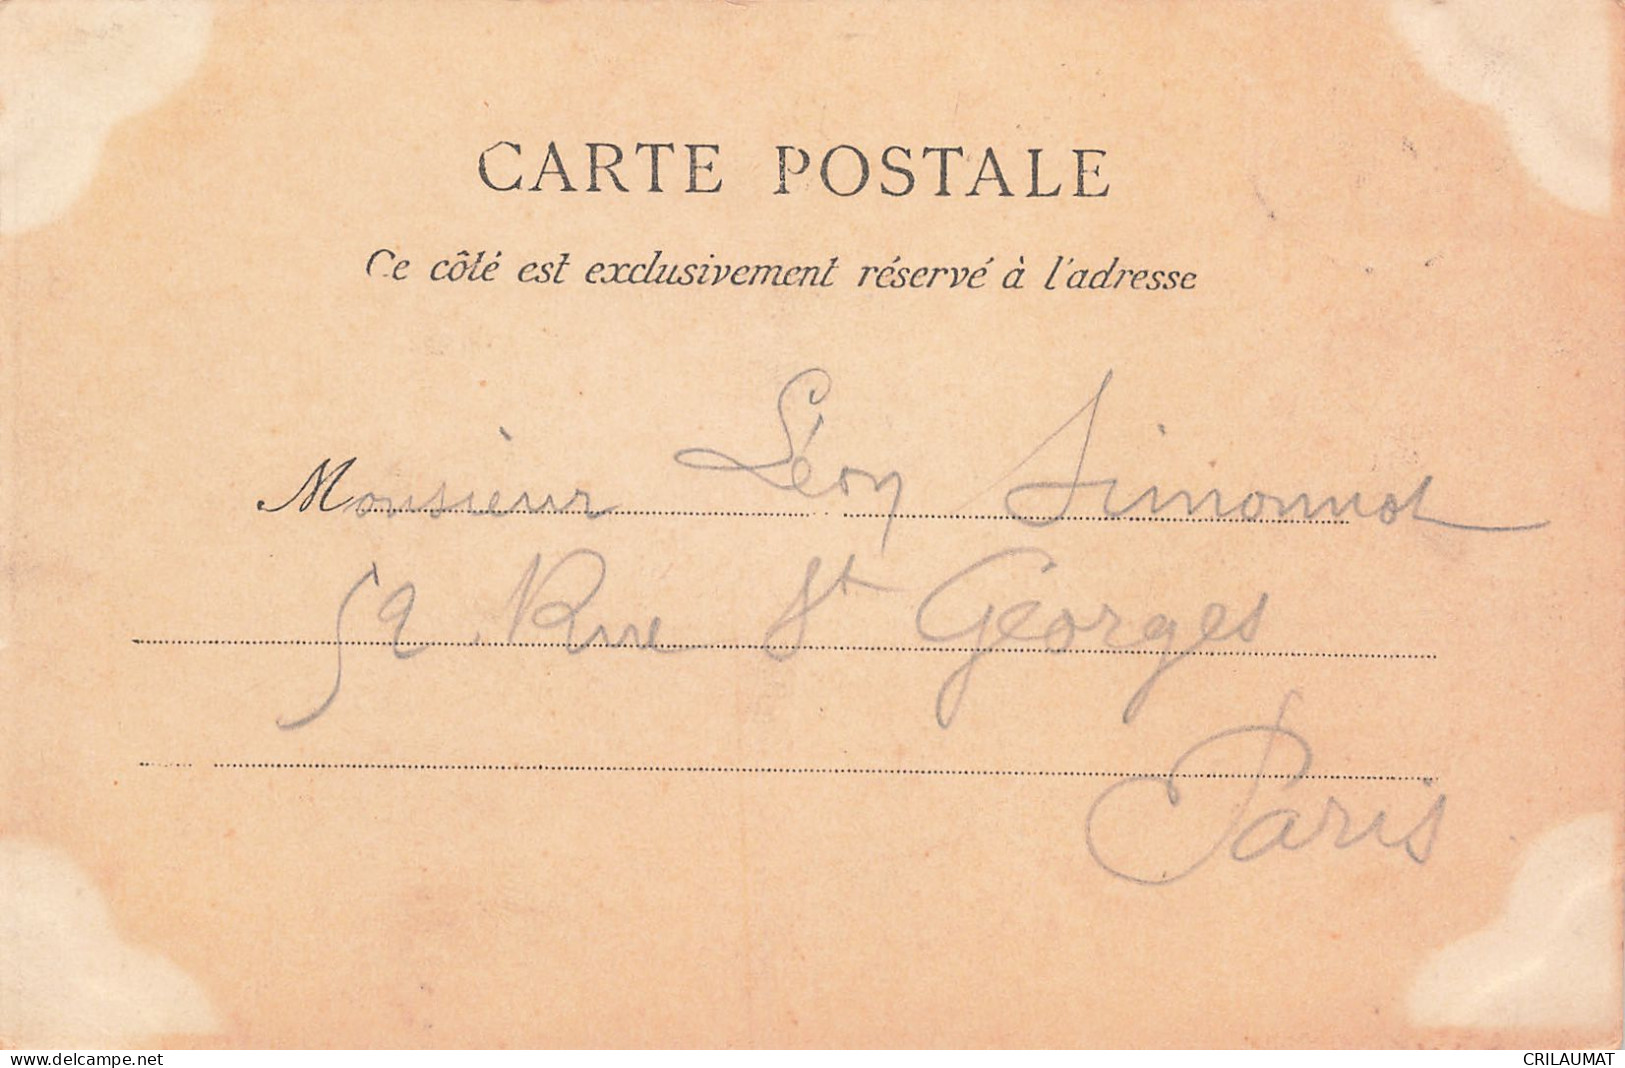 CARTE POSTALE
Ce côté est exclusivement réservé à l'adresse
Monsieur Léon Simonnot
52 Rue St Georges
Paris
www.delcampe.net
CRILAUMAT